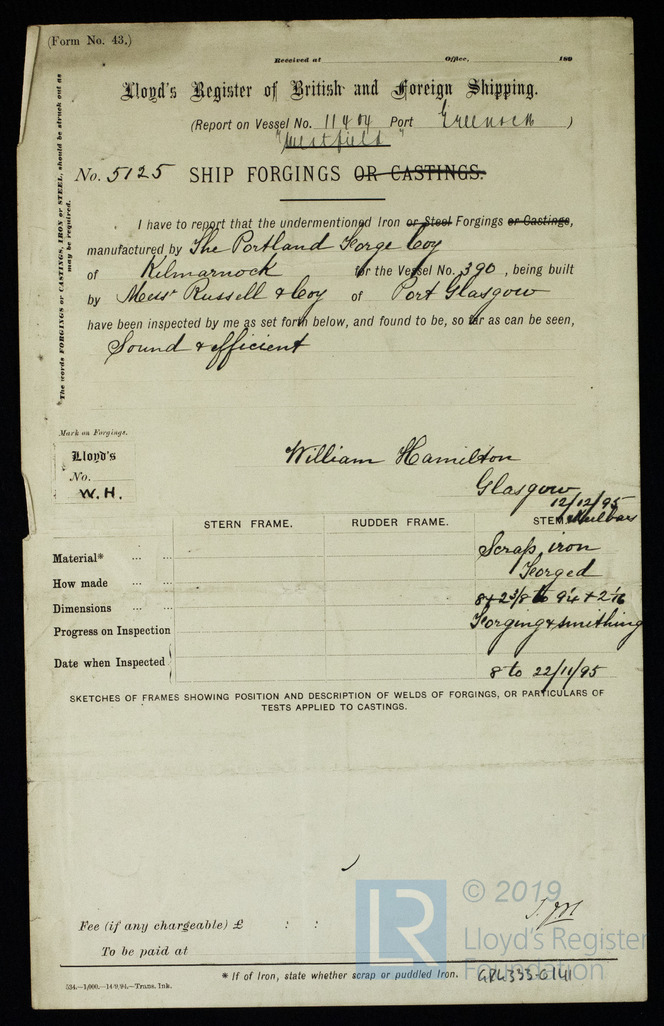 (Form No. 43.)
Received at Office, 189
Lloyd's Register of British and Foreign Shipping.
(Report on Vessel No. 11404 Port Greenock )
"Westfield"
No. 5125 SHIP FORGINGS OR CASTINGS.
*The words FORGINGS or CASTINGS, IRON or STEEL, should be struck out as may be required.
I have to report that the undermentioned Iron or Steel Forgings or Castings,
manufactured by The Portland Forge Coy
of Kilmarnock for the Vessel No. 390, being built
by Messrs Russell & Coy of Port Glasgow
have been inspected by me as set forth below, and found to be, so far as can be seen,
Sound & efficient
Mark on Forgings.
Lloyd's
No.
W.H.
William Hamilton
Glasgow
12/12/95
STERN FRAME. RUDDER FRAME. STEM & Keelbars
Material* ... ... Scrap iron
How made ... ... Forged
Dimensions ... ... 8 x 2 3/8 to 9 1/4 x 2
Progress on Inspection Forging & smithing
Date when Inspected 8 to 22/11/95
SKETCHES OF FRAMES SHOWING POSITION AND DESCRIPTION OF WELDS OF FORGINGS, OR PARTICULARS OF
TESTS APPLIED TO CASTINGS.
Fee (if any chargeable) £ : :
To be paid at
* If of Iron, state whether scrap or puddled Iron.
GRK333-0141
534.—1,000.—14/9/94.—Trans. Ink.
LR
© 2019
Lloyd's Register
Foundation